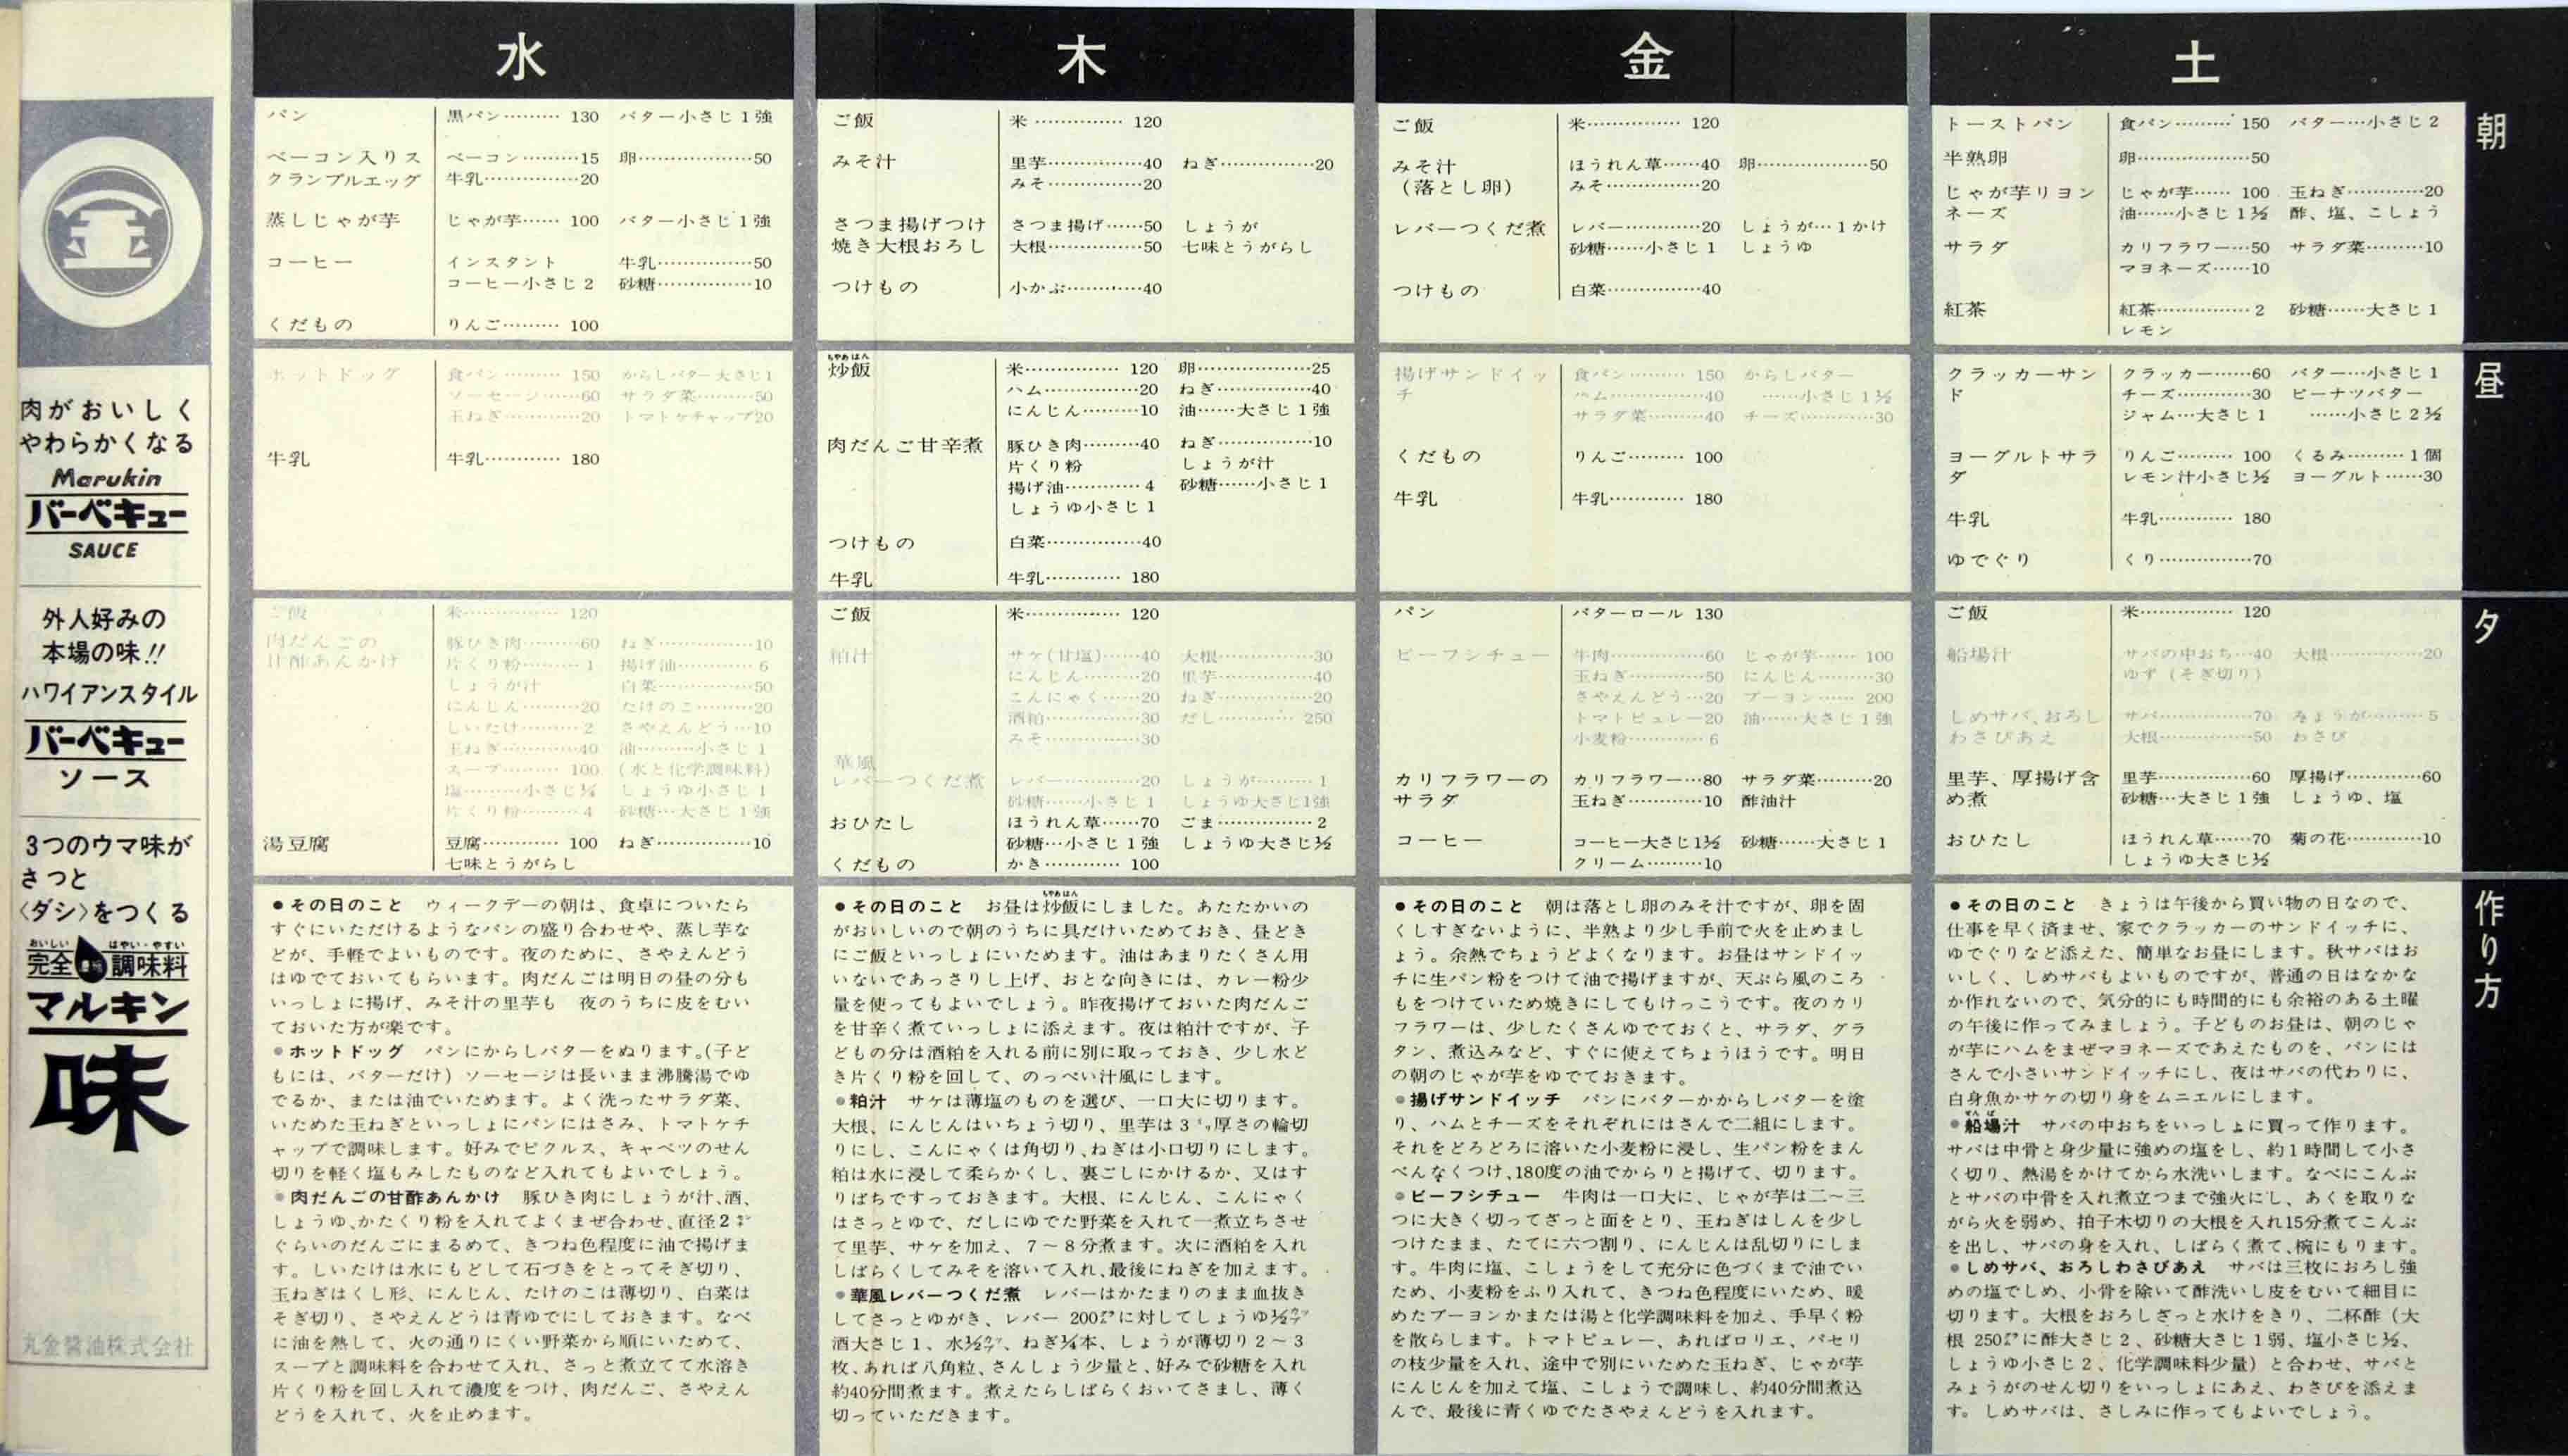 肉がおいしく
やわらかくなる
Marukin
バーベキュー
SAUCE
外人好みの
本場の味!!
ハワイアンスタイル
バーベキュー
ソース
3つのウマ味が
さっと
〈ダシ〉をつくる
おいしい はやい・やすい
完全 調味料
マルキン
味
丸金醤油株式会社
水
パン 黒パン……… 130 バター小さじ1強
ベーコン入りス ベーコン………15 卵………………50
クランブルエッグ 牛乳……………20
蒸しじゃが芋 じゃが芋…… 100 バター小さじ1強
コーヒー インスタント 牛乳……………50
コーヒー小さじ2 砂糖……………10
くだもの りんご……… 100
ホットドッグ 食パン……… 150 からしバター大さじ1
ソーセージ……60 サラダ菜………50
玉ねぎ…………20 トマトケチャップ20
牛乳 牛乳………… 180
ご飯 米…………… 120
肉だんごの 豚ひき肉………60 ねぎ……………10
甘酢あんかけ 片くり粉……… 1 揚げ油………… 6
しょうが汁 白菜……………50
にんじん………20 たけのこ………20
しいたけ……… 2 さやえんどう…10
玉ねぎ…………40 油………小さじ1
スープ……… 100 (水と化学調味料)
塩………小さじ⅓ しょうゆ小さじ1
片くり粉……… 4 砂糖…大さじ1強
湯豆腐 豆腐………… 100 ねぎ……………10
七味とうがらし
●その日のこと ウィークデーの朝は、食卓についたら
すぐにいただけるようなパンの盛り合わせや、蒸し芋な
どが、手軽でよいものです。夜のために、さやえんどう
はゆでておいてもらいます。肉だんごは明日の昼の分も
いっしょに揚げ、みそ汁の里芋も 夜のうちに皮をむい
ておいた方が楽です。
●ホットドッグ パンにからしバターをぬります。(子ど
もには、バターだけ) ソーセージは長いまま沸騰湯でゆ
でるか、または油でいためます。よく洗ったサラダ菜、
いためた玉ねぎといっしょにパンにはさみ、トマトケチ
ャップで調味します。好みでピクルス、キャベツのせん
切りを軽く塩もみしたものなど入れてもよいでしょう。
●肉だんごの甘酢あんかけ 豚ひき肉にしょうが汁、酒、
しょうゆ、かたくり粉を入れてよくまぜ合わせ、直径2㌢
ぐらいのだんごにまるめて、きつね色程度に油で揚げま
す。しいたけは水にもどして石づきをとってそぎ切り、
玉ねぎはくし形、にんじん、たけのこは薄切り、白菜は
そぎ切り、さやえんどうは青ゆでにしておきます。なべ
に油を熱して、火の通りにくい野菜から順にいためて、
スープと調味料を合わせて入れ、さっと煮立てて水溶き
片くり粉を回し入れて濃度をつけ、肉だんご、さやえん
どうを入れて、火を止めます。
木
ご飯 米…………… 120
みそ汁 里芋……………40 ねぎ……………20
みそ……………20
さつま揚げつけ さつま揚げ……50 しょうが
焼き大根おろし 大根……………50 七味とうがらし
つけもの 小かぶ…………40
ちやあはん
炒飯 米…………… 120 卵………………25
ハム……………20 ねぎ……………40
にんじん………10 油……大さじ1強
肉だんご甘辛煮 豚ひき肉………40 ねぎ……………10
片くり粉 しょうが汁
揚げ油………… 4 砂糖……小さじ1
しょうゆ小さじ1
つけもの 白菜……………40
牛乳 牛乳………… 180
ご飯 米…………… 120
粕汁 サケ(甘塩)……40 大根……………30
にんじん………20 里芋……………40
こんにゃく……20 ねぎ……………20
酒粕……………30 だし………… 250
みそ……………30
華風
レバーつくだ煮 レバー…………20 しょうが……… 1
砂糖……小さじ1 しょうゆ大さじ1強
おひたし ほうれん草……70 ごま…………… 2
砂糖…小さじ1強 しょうゆ大さじ½
くだもの かき………… 100
ちやあはん
●その日のこと お昼は炒飯にしました。あたたかいの
がおいしいので朝のうちに具だけいためておき、昼どき
にご飯といっしょにいためます。油はあまりたくさん用
いないであっさり上げ、おとな向きには、カレー粉少
量を使ってもよいでしょう。昨夜揚げておいた肉だんご
を甘辛く煮ていっしょに添えます。夜は粕汁ですが、子
どもの分は酒粕を入れる前に別に取っておき、少し水ど
き片くり粉を回して、のっぺい汁風にします。
●粕汁 サケは薄塩のものを選び、一口大に切ります。
大根、にんじんはいちょう切り、里芋は3㍉厚さの輪切
りにし、こんにゃくは角切り、ねぎは小口切りにします。
粕は水に浸して柔らかくし、裏ごしにかけるか、又はす
りばちですっておきます。大根、にんじん、こんにゃく
はさっとゆで、だしにゆでた野菜を入れて一煮立ちさせ
て里芋、サケを加え、7〜8分煮ます。次に酒粕を入れ
しばらくしてみそを溶いて入れ、最後にねぎを加えます。
●華風レバーつくだ煮 レバーはかたまりのまま血抜き
してさっとゆがき、レバー 200㌘に対してしょうゆ½㌍
酒大さじ1、水½㌍、ねぎ¼本、しょうが薄切り2〜3
枚、あれば八角粒、さんしょう少量と、好みで砂糖を入れ
約40分間煮ます。煮えたらしばらくおいてさまし、薄く
切っていただきます。
金
ご飯 米…………… 120
みそ汁 ほうれん草……40 卵………………50
(落とし卵) みそ……………20
レバーつくだ煮 レバー…………20 しょうが…1かけ
砂糖……小さじ1 しょうゆ
つけもの 白菜……………40
揚げサンドイッ 食パン……… 150 からしバター
チ ハム……………40 ……小さじ1½
サラダ菜………40 チーズ…………30
くだもの りんご……… 100
牛乳 牛乳………… 180
パン バターロール 130
ビーフシチュー 牛肉……………60 じゃが芋…… 100
玉ねぎ…………50 にんじん………30
さやえんどう…20 ブーヨン…… 200
トマトピュレー20 油……大さじ1強
小麦粉………… 6
カリフラワーの カリフラワー…80 サラダ菜………20
サラダ 玉ねぎ…………10 酢油汁
コーヒー コーヒー大さじ1½ 砂糖……大さじ1
クリーム………10
●その日のこと 朝は落とし卵のみそ汁ですが、卵を固
くしすぎないように、半熟より少し手前で火を止めまし
ょう。余熱でちょうどよくなります。お昼はサンドイッ
チに生パン粉をつけて油で揚げますが、天ぷら風のころ
もをつけていため焼きにしてもけっこうです。夜のカリ
フラワーは、少したくさんゆでておくと、サラダ、グラ
タン、煮込みなど、すぐに使えてちょうほうです。明日
の朝のじゃが芋をゆでておきます。
●揚げサンドイッチ パンにバターかからしバターを塗
り、ハムとチーズをそれぞれにはさんで二組にします。
それをどろどろに溶いた小麦粉に浸し、生パン粉をまん
べんなくつけ、180度の油でからりと揚げて、切ります。
●ビーフシチュー 牛肉は一口大に、じゃが芋は二〜三
つに大きく切ってざっと面をとり、玉ねぎはしんを少し
つけたまま、たてに六つ割り、にんじんは乱切りにしま
す。牛肉に塩、こしょうをして充分に色づくまで油でい
ため、小麦粉をふり入れて、きつね色程度にいため、暖
めたブーヨンかまたは湯と化学調味料を加え、手早く粉
を散らします。トマトピュレー、あればロリエ、パセリ
の枝少量を入れ、途中で別にいためた玉ねぎ、じゃが芋
にんじんを加えて塩、こしょうで調味し、約40分間煮込
んで、最後に青くゆでたさやえんどうを入れます。
土
トーストパン 食パン……… 150 バター…小さじ2
半熟卵 卵………………50
じゃが芋リヨン じゃが芋…… 100 玉ねぎ…………20
ネーズ 油……小さじ1½ 酢、塩、こしょう
サラダ カリフラワー…50 サラダ菜………10
マヨネーズ……10
紅茶 紅茶…………… 2 砂糖……大さじ1
レモン
クラッカーサン クラッカー……60 バター…小さじ1
ド チーズ…………30 ピーナツバター
ジャム…大さじ1 ……小さじ2½
ヨーグルトサラ りんご……… 100 くるみ……… 1個
ダ レモン汁小さじ½ ヨーグルト……30
牛乳 牛乳………… 180
ゆでぐり くり……………70
ご飯 米…………… 120
船場汁 サバの中おち…40 大根……………20
ゆず(そぎ切り)
しめサバ、おろし サバ……………70 みょうが……… 5
わさびあえ 大根……………50 わさび
里芋、厚揚げ含 里芋……………60 厚揚げ…………60
め煮 砂糖…大さじ1強 しょうゆ、塩
おひたし ほうれん草……70 菊の花…………10
しょうゆ大さじ½
●その日のこと きょうは午後から買い物の日なので、
仕事を早く済ませ、家でクラッカーのサンドイッチに、
ゆでぐりなど添えた、簡単なお昼にします。秋サバはお
いしく、しめサバもよいものですが、普通の日はなかな
か作れないので、気分的にも時間的にも余裕のある土曜
の午後に作ってみましょう。子どものお昼は、朝のじゃ
が芋にハムをまぜマヨネーズであえたものを、パンには
さんで小さいサンドイッチにし、夜はサバの代わりに、
白身魚かサケの切り身をムニエルにします。
せんば
●船場汁 サバの中おちをいっしょに買って作ります。
サバは中骨と身少量に強めの塩をし、約1時間して小さ
く切り、熱湯をかけてから水洗いします。なべにこんぶ
とサバの中骨を入れ煮立つまで強火にし、あくを取りな
がら火を弱め、拍子木切りの大根を入れ15分煮てこんぶ
を出し、サバの身を入れ、しばらく煮て、椀にもります。
●しめサバ、おろしわさびあえ サバは三枚におろし強
めの塩でしめ、小骨を除いて酢洗いし皮をむいて細目に
切ります。大根をおろしざっと水けをきり、二杯酢(大
根 250㌘に酢大さじ2、砂糖大さじ1弱、塩小さじ⅓、
しょうゆ小さじ2、化学調味料少量)と合わせ、サバと
みょうがのせん切りをいっしょにあえ、わさびを添えま
す。しめサバは、さしみに作ってもよいでしょう。
朝
昼
夕
作り方